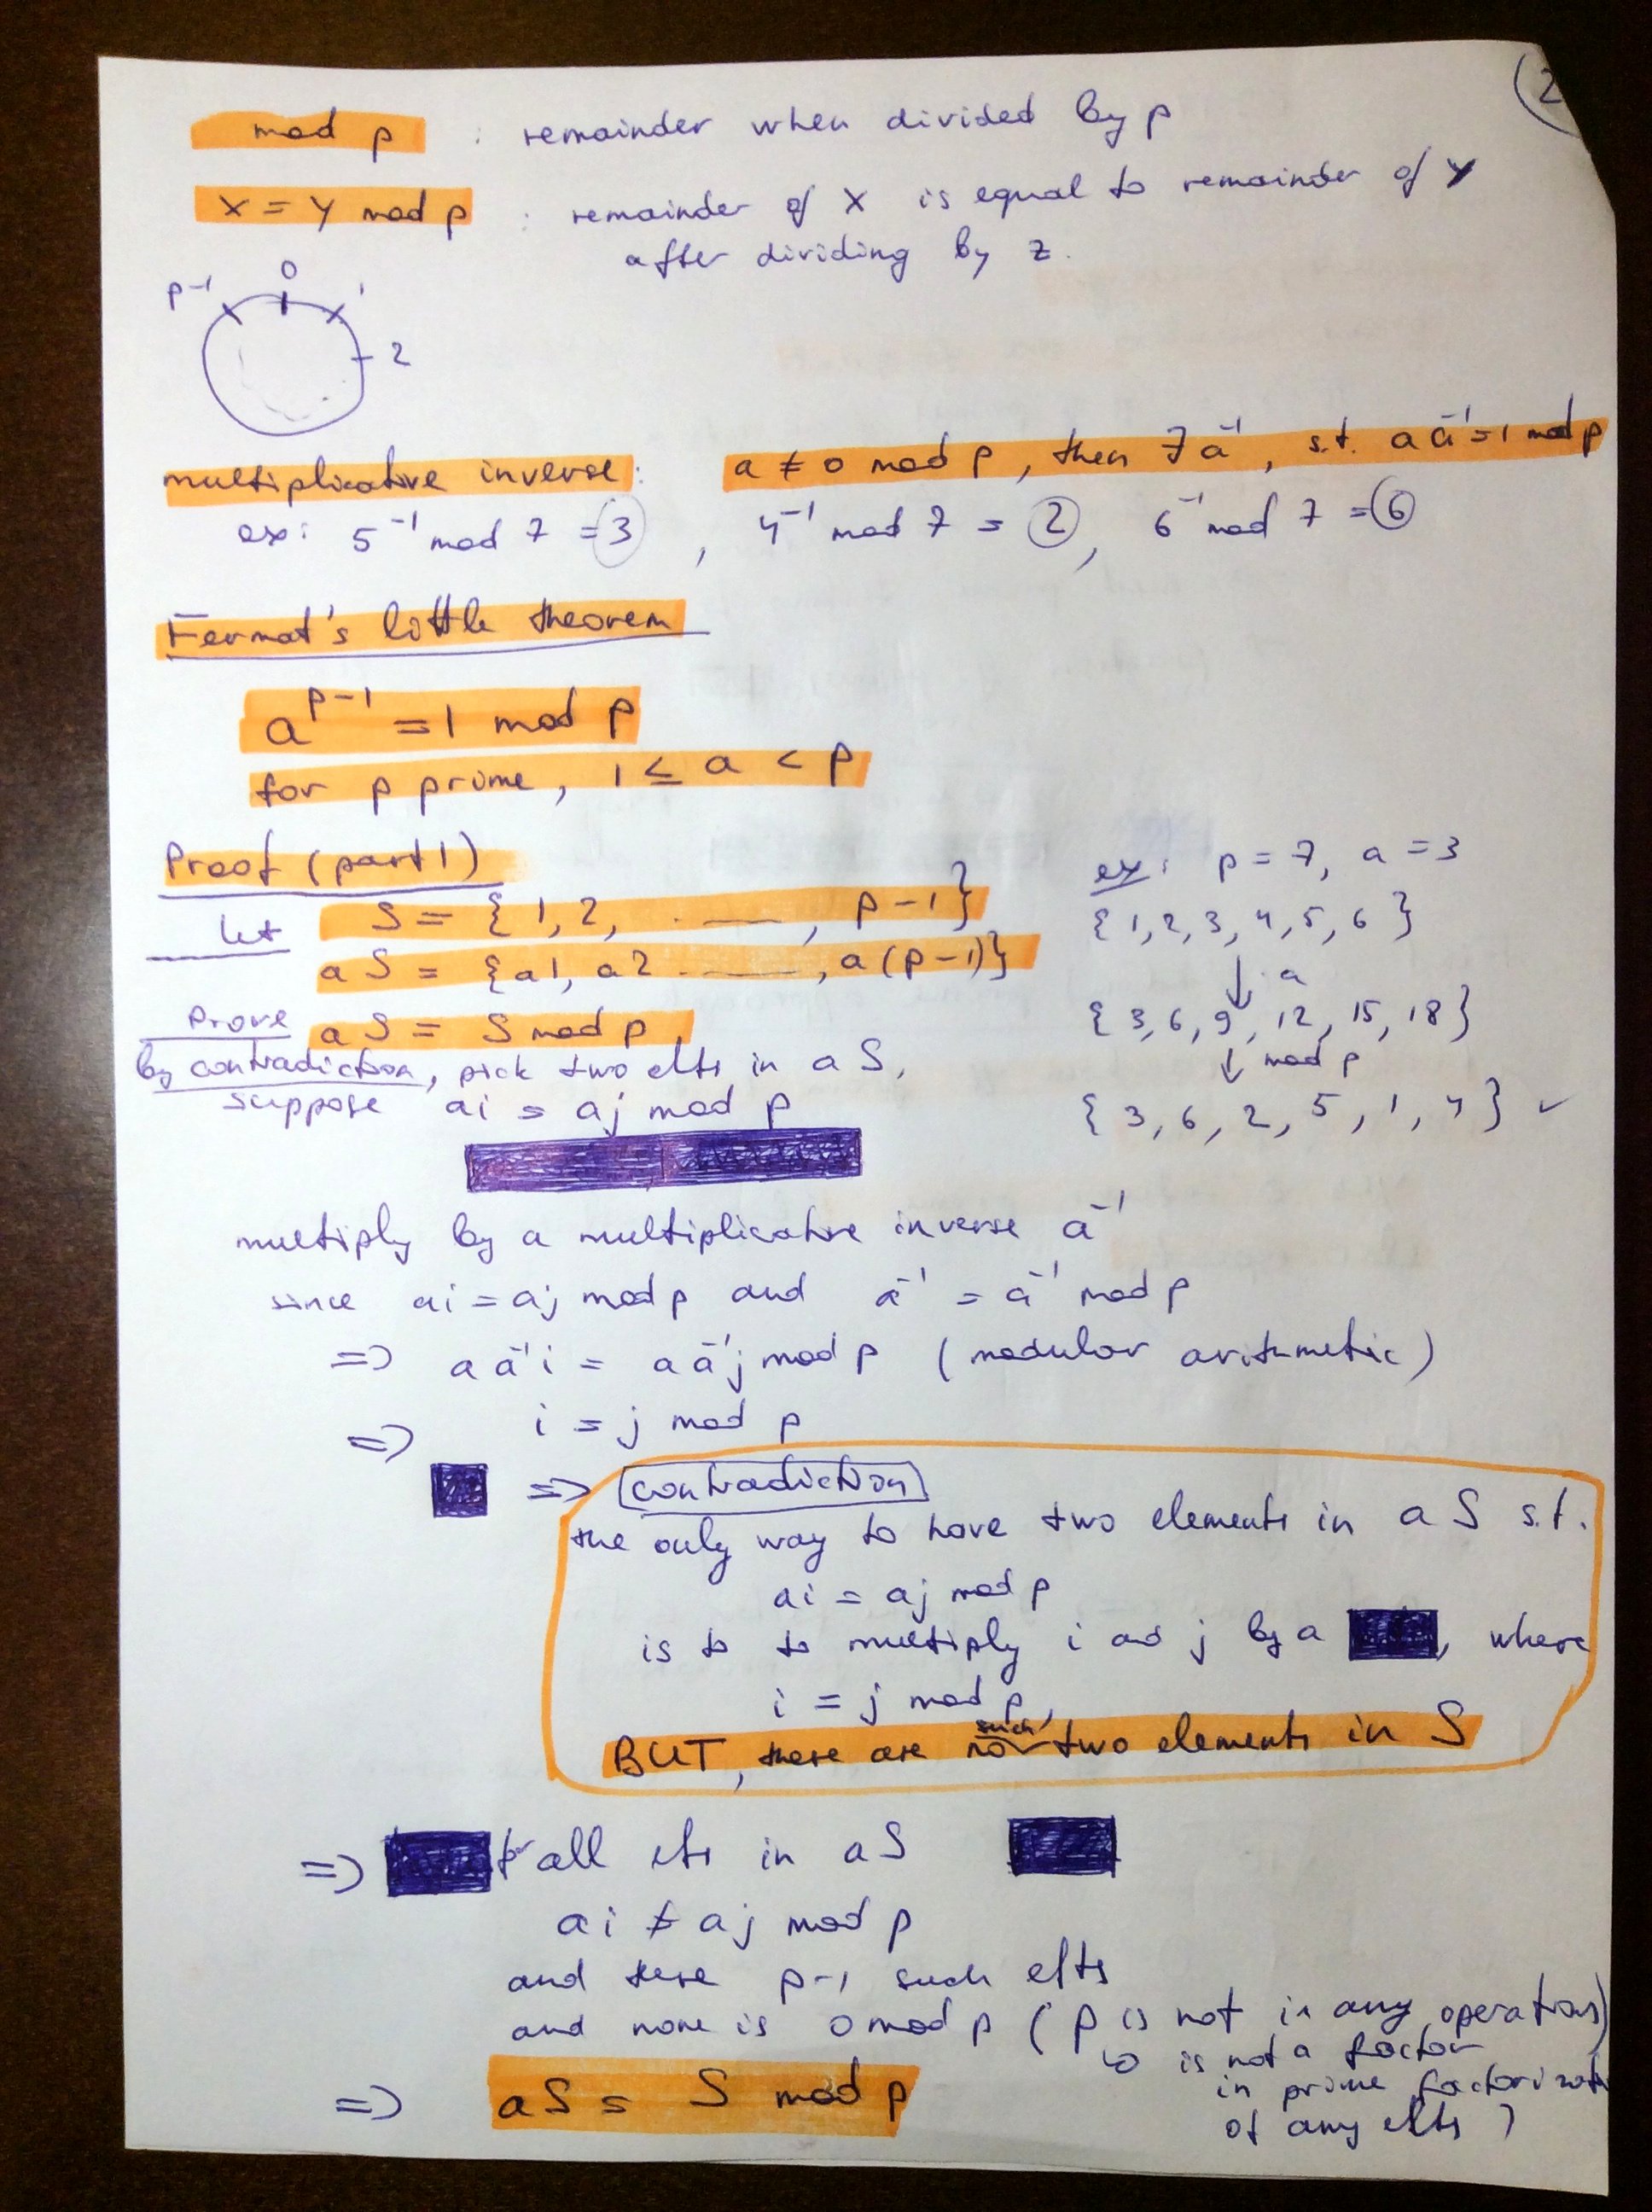 2
mod p : remainder when divided by p
x = y mod p : remainder of x is equal to remainder of y
after dividing by z.
p-1 0 1
2
multiplicative inverse: a ≠ 0 mod p, then ∃ a⁻¹, s.t. a a⁻¹ = 1 mod p
ex: 5⁻¹ mod 7 = 3, 4⁻¹ mod 7 = 2, 6⁻¹ mod 7 = 6
Fermat's little theorem
a^(p-1) = 1 mod p
for p prime, 1 ≤ a < p
Proof (part 1)
Let S = {1, 2, . ——, p-1}
aS = {a1, a2 . ——, a(p-1)}
Prove aS = S mod p
by contradiction, pick two elts in aS,
suppose ai = aj mod p
ex: p = 7, a = 3
{1, 2, 3, 4, 5, 6}
↓ · a
{3, 6, 9, 12, 15, 18}
↓ mod p
{3, 6, 2, 5, 1, 4} ✓
multiply by a multiplicative inverse a⁻¹
since ai = aj mod p and a⁻¹ = a⁻¹ mod p
=> a a⁻¹ i = a a⁻¹ j mod p (modular arithmetic)
=> i = j mod p
=> contradiction
the only way to have two elements in aS s.t.
ai = aj mod p
is to to multiply i and j by a , where
i = j mod p,
BUT, there are no such two elements in S
=> all elts in aS
ai ≠ aj mod p
and there p-1 such elts
and none is 0 mod p (p is not in any operations)
↳ is not a factor
in prime
of any elts )
=> aS = S mod p